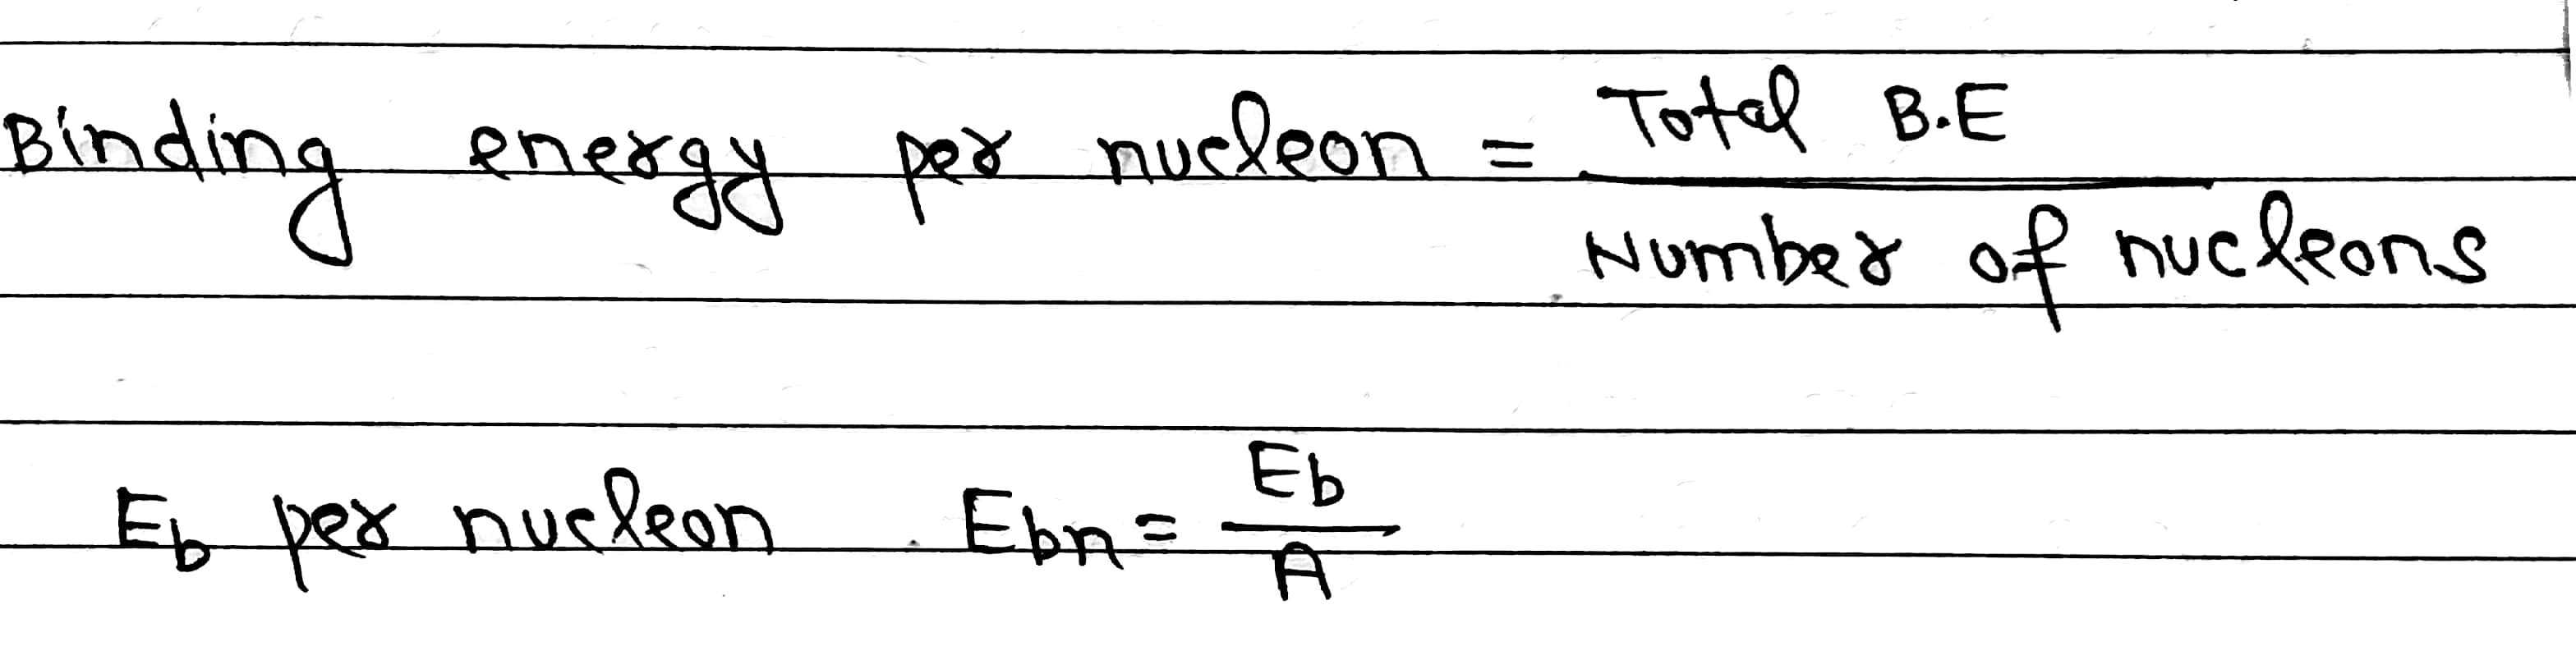 Binding energy per nucleon = Total B.E / Number of nucleons
Eb per nucleon Ebn = Eb / A